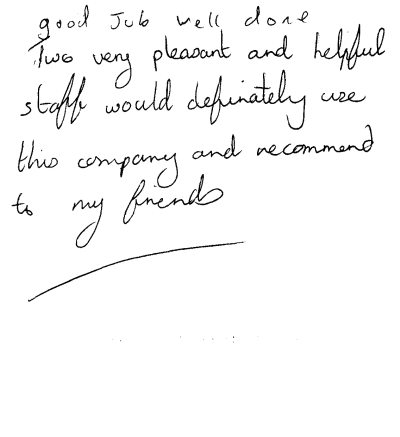 good Job well done
Two very pleasant and helpful
staff would definately use
this company and recommend
to my friends